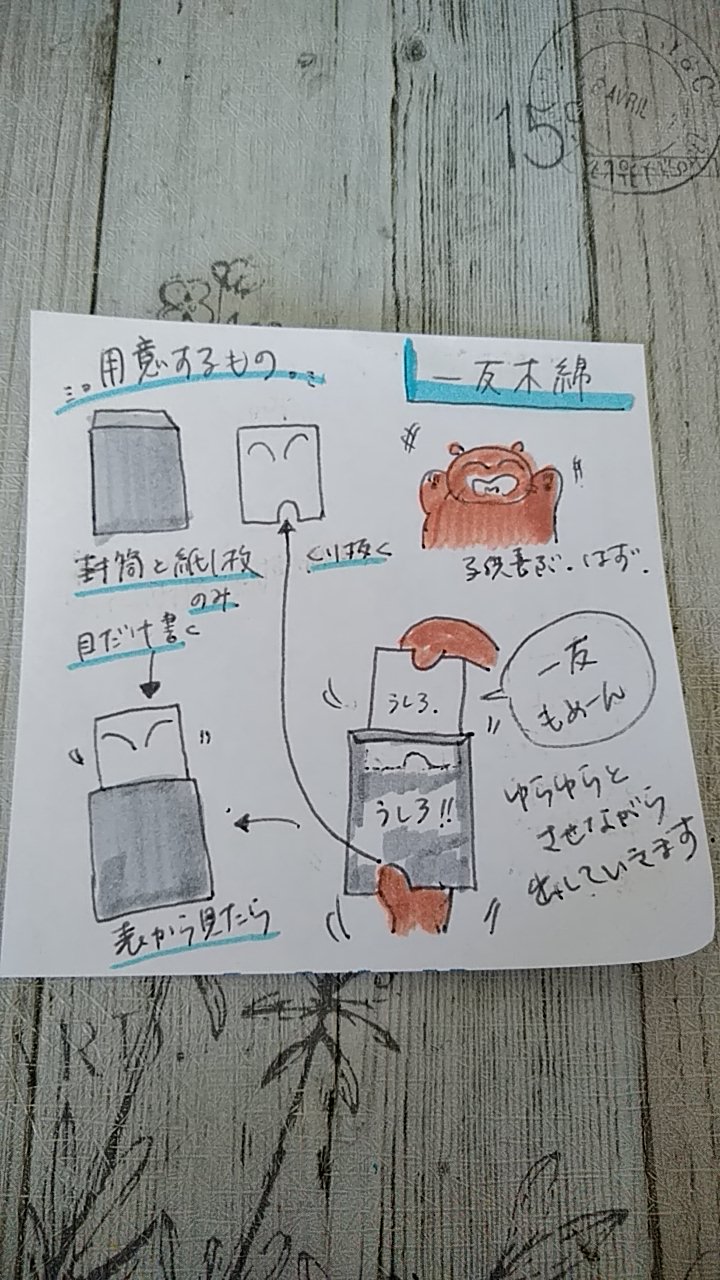 用意するもの
一反木綿
封筒と紙1枚
のみ
くり抜く
子供喜ぶ.はず.
目だけ書く
うしろ.
うしろ!!
一反
もめーん
ゆらゆらと
させながら
出していきます.
表から見たら
15
8 AVRIL